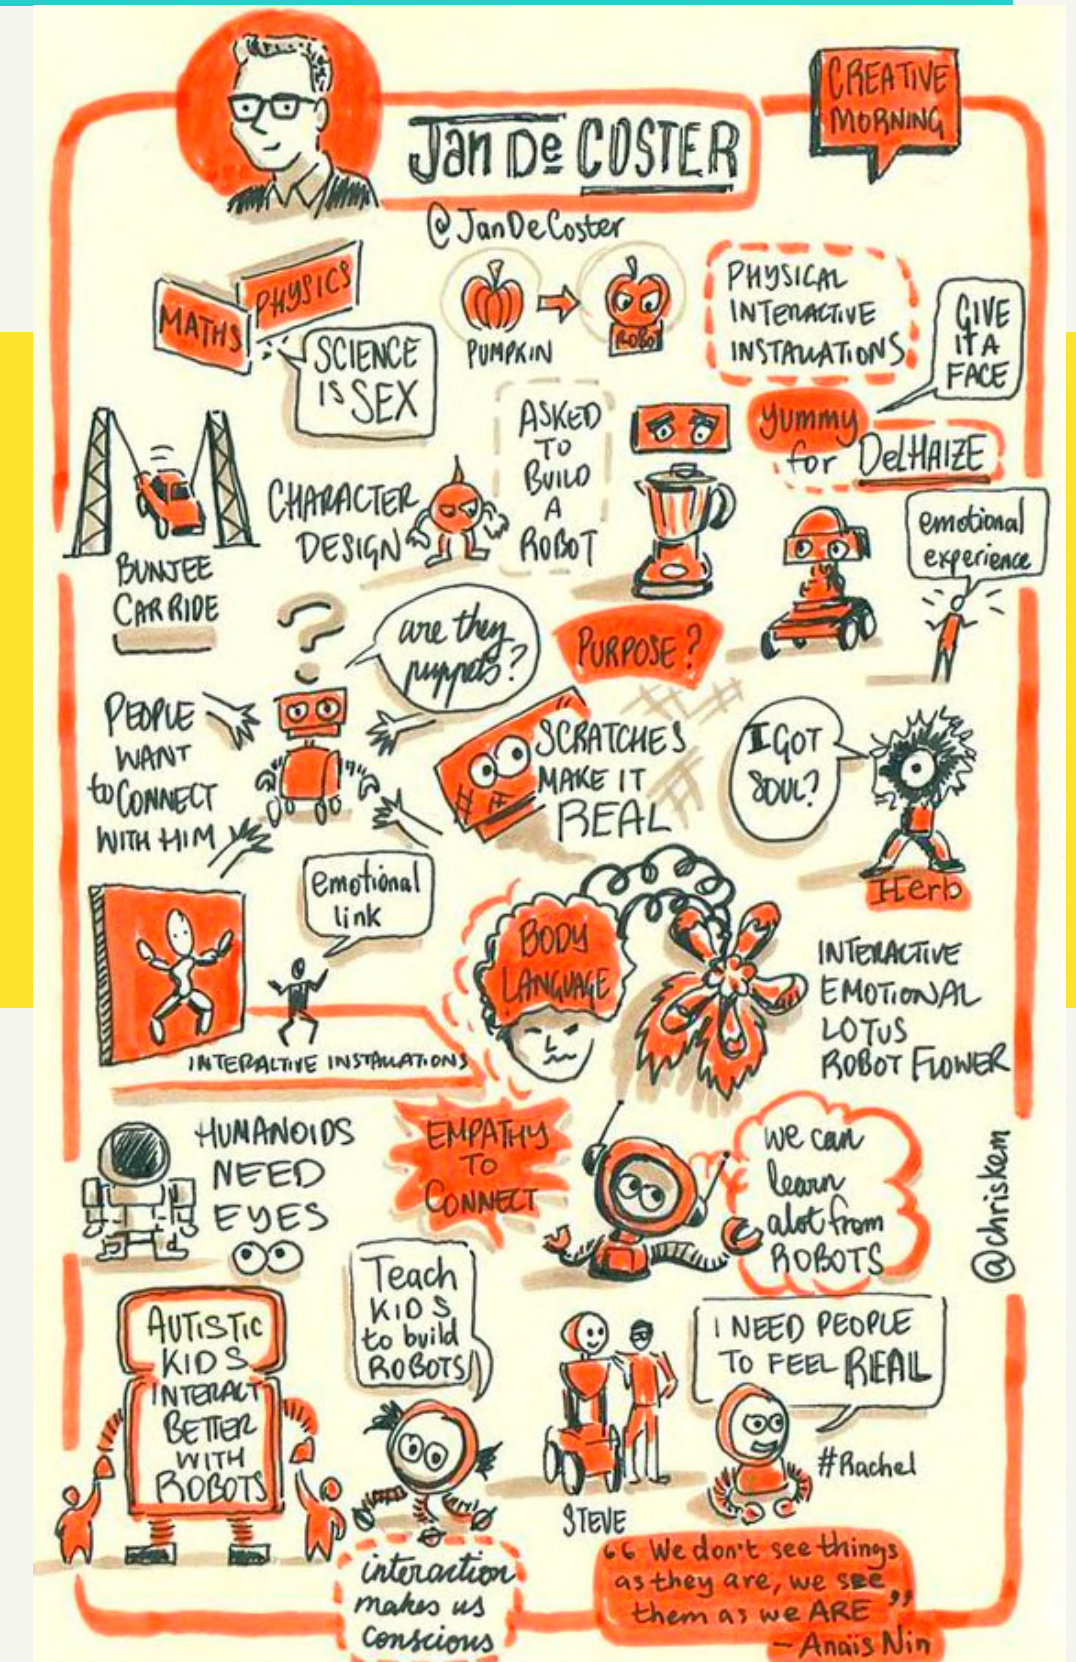 CREATIVE
MORNING
Jan De COSTER
@JanDeCoster
MATHS
PHYSICS
SCIENCE
IS SEX
PUMPKIN
ROBOT
PHYSICAL
INTERACTIVE
INSTALLATIONS
GIVE
IT A
FACE
Yummy
for DELHAIZE
BUNJEE
CAR RIDE
CHARACTER
DESIGN
ASKED
TO
BUILD
A
ROBOT
emotional
experience
are they
puppets?
PURPOSE?
PEOPLE
WANT
to CONNECT
WITH HIM
SCRATCHES
MAKE IT
REAL
I GOT
SOUL?
Herb
emotional
link
INTERACTIVE INSTALLATIONS
BODY
LANGUAGE
INTERACTIVE
EMOTIONAL
LOTUS
ROBOT FLOWER
HUMANOIDS
NEED
EYES
EMPATHY
TO
CONNECT
we can
learn
alot from
ROBOTS
@chriskem
AUTISTIC
KIDS
INTERACT
BETTER
WITH
ROBOTS
Teach
KIDS
to build
ROBOTS
STEVE
I NEED PEOPLE
TO FEEL REAL
#Rachel
interaction
makes us
conscious
“We don't see things
as they are, we see
them as we ARE”
- Anaïs Nin